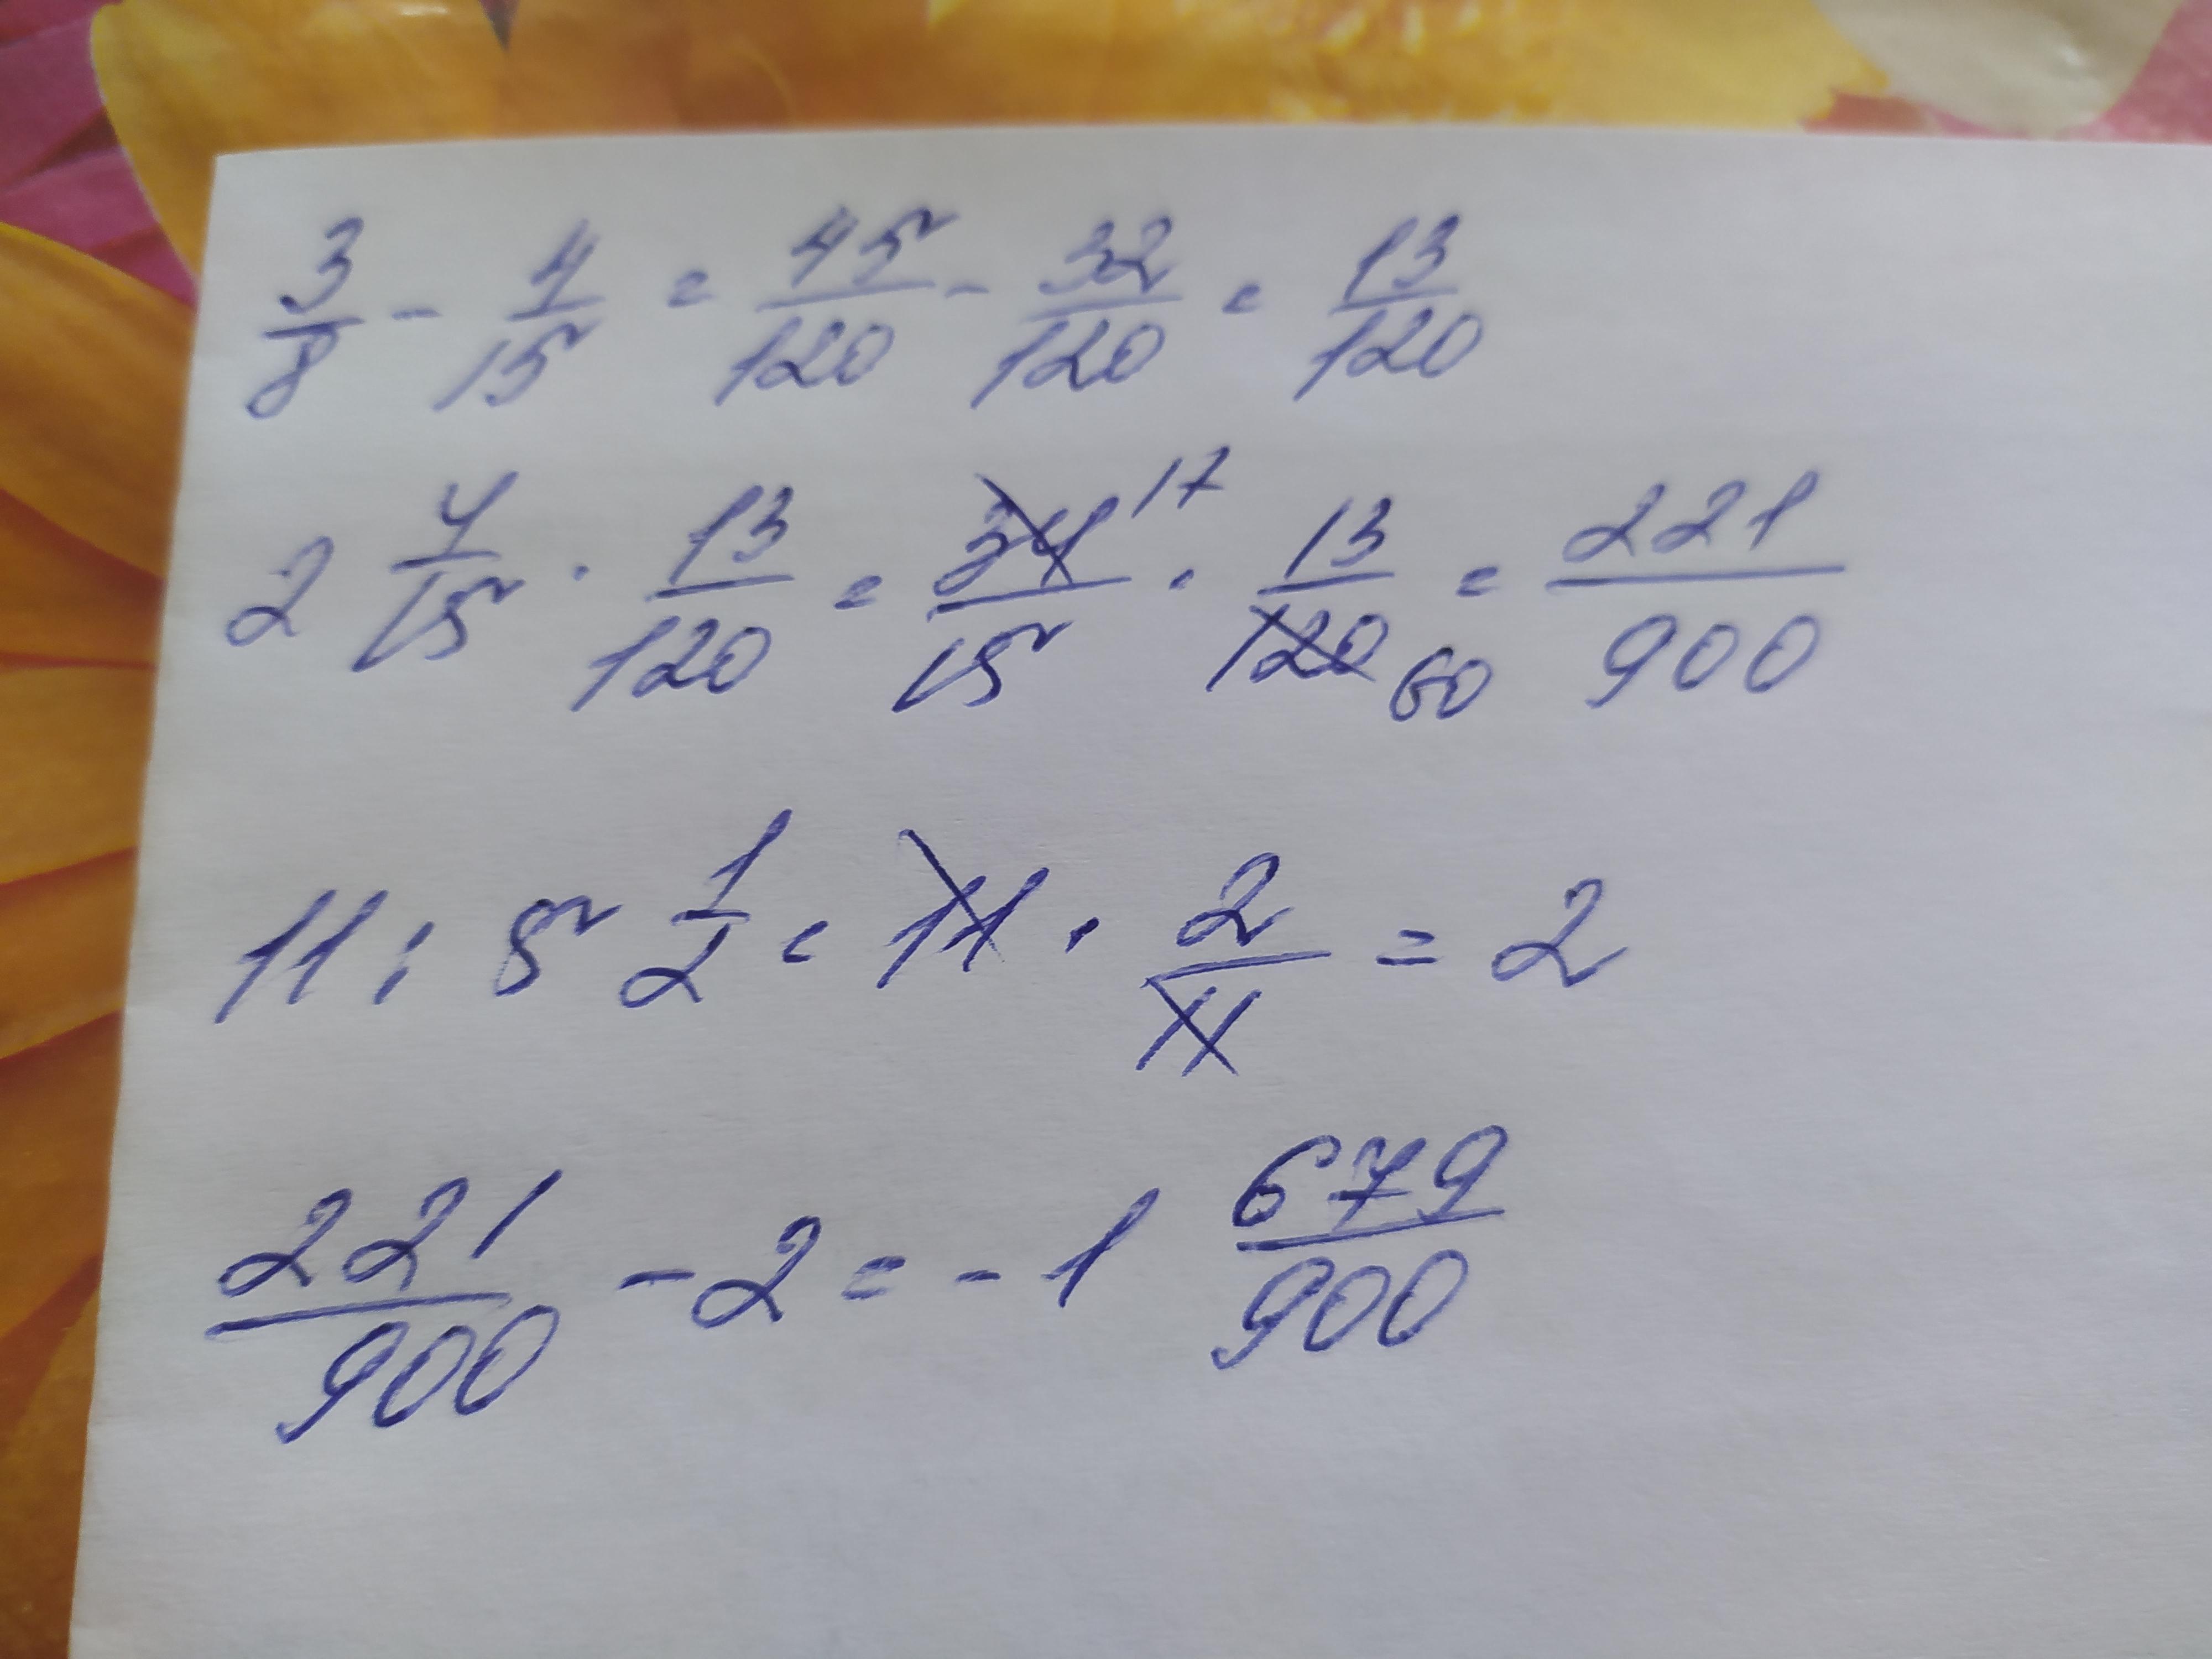 3/8 - 4/15 = 45/120 - 32/120 = 13/120
2 4/15 · 13/120 = 34/15 17 · 13/120 60 = 221/900
11 : 5 1/2 = 11 · 2/11 = 2
221/900 - 2 = -1 679/900